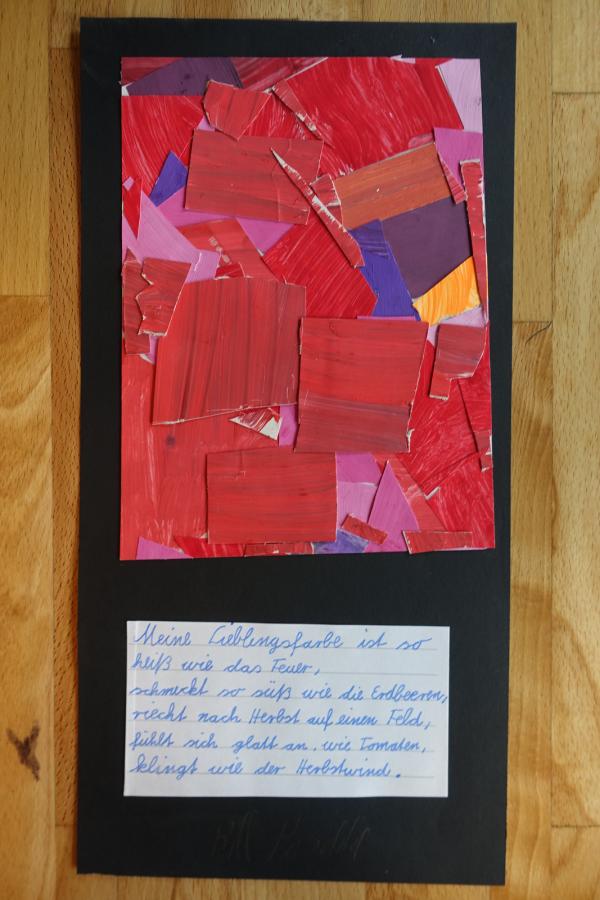 Meine Lieblingsfarbe ist so
heiß wie das Feuer,
schmeckt so süß wie die Erdbeeren,
riecht nach Herbst auf einen Feld,
fühlt sich glatt an, wie Tomaten,
klingt wie der Herbstwind.